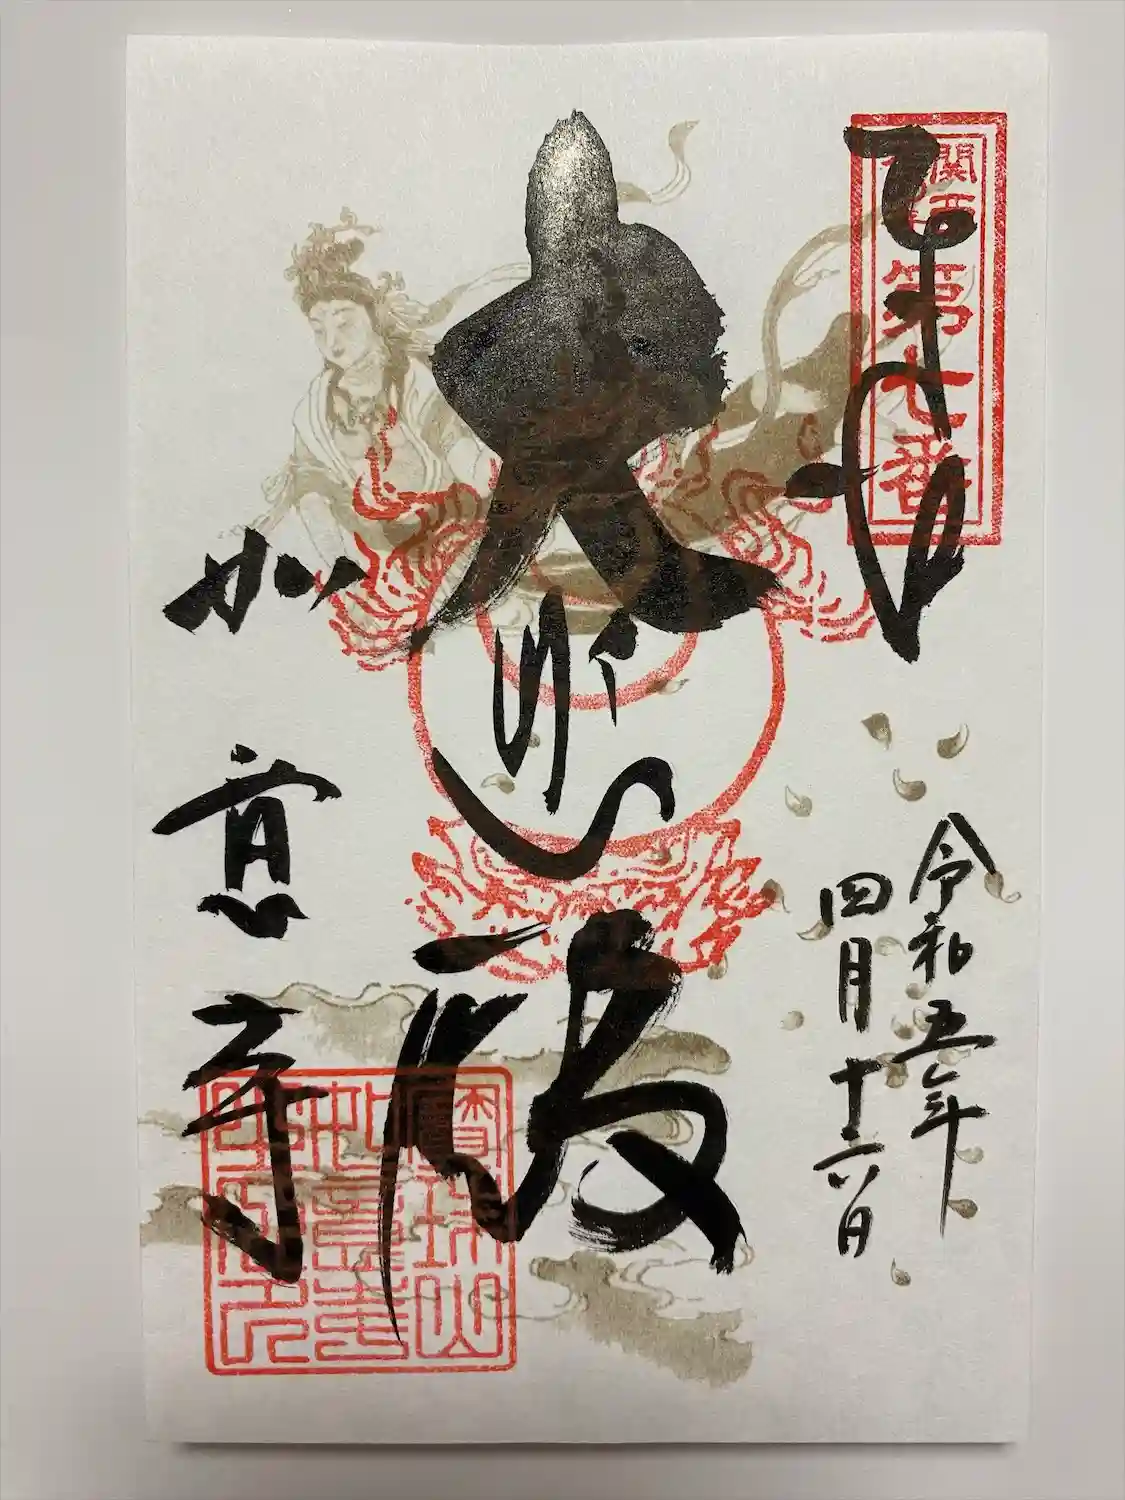 奉拝
関西
第七番
令和五年
四月十六日
大悲殿
如意寺